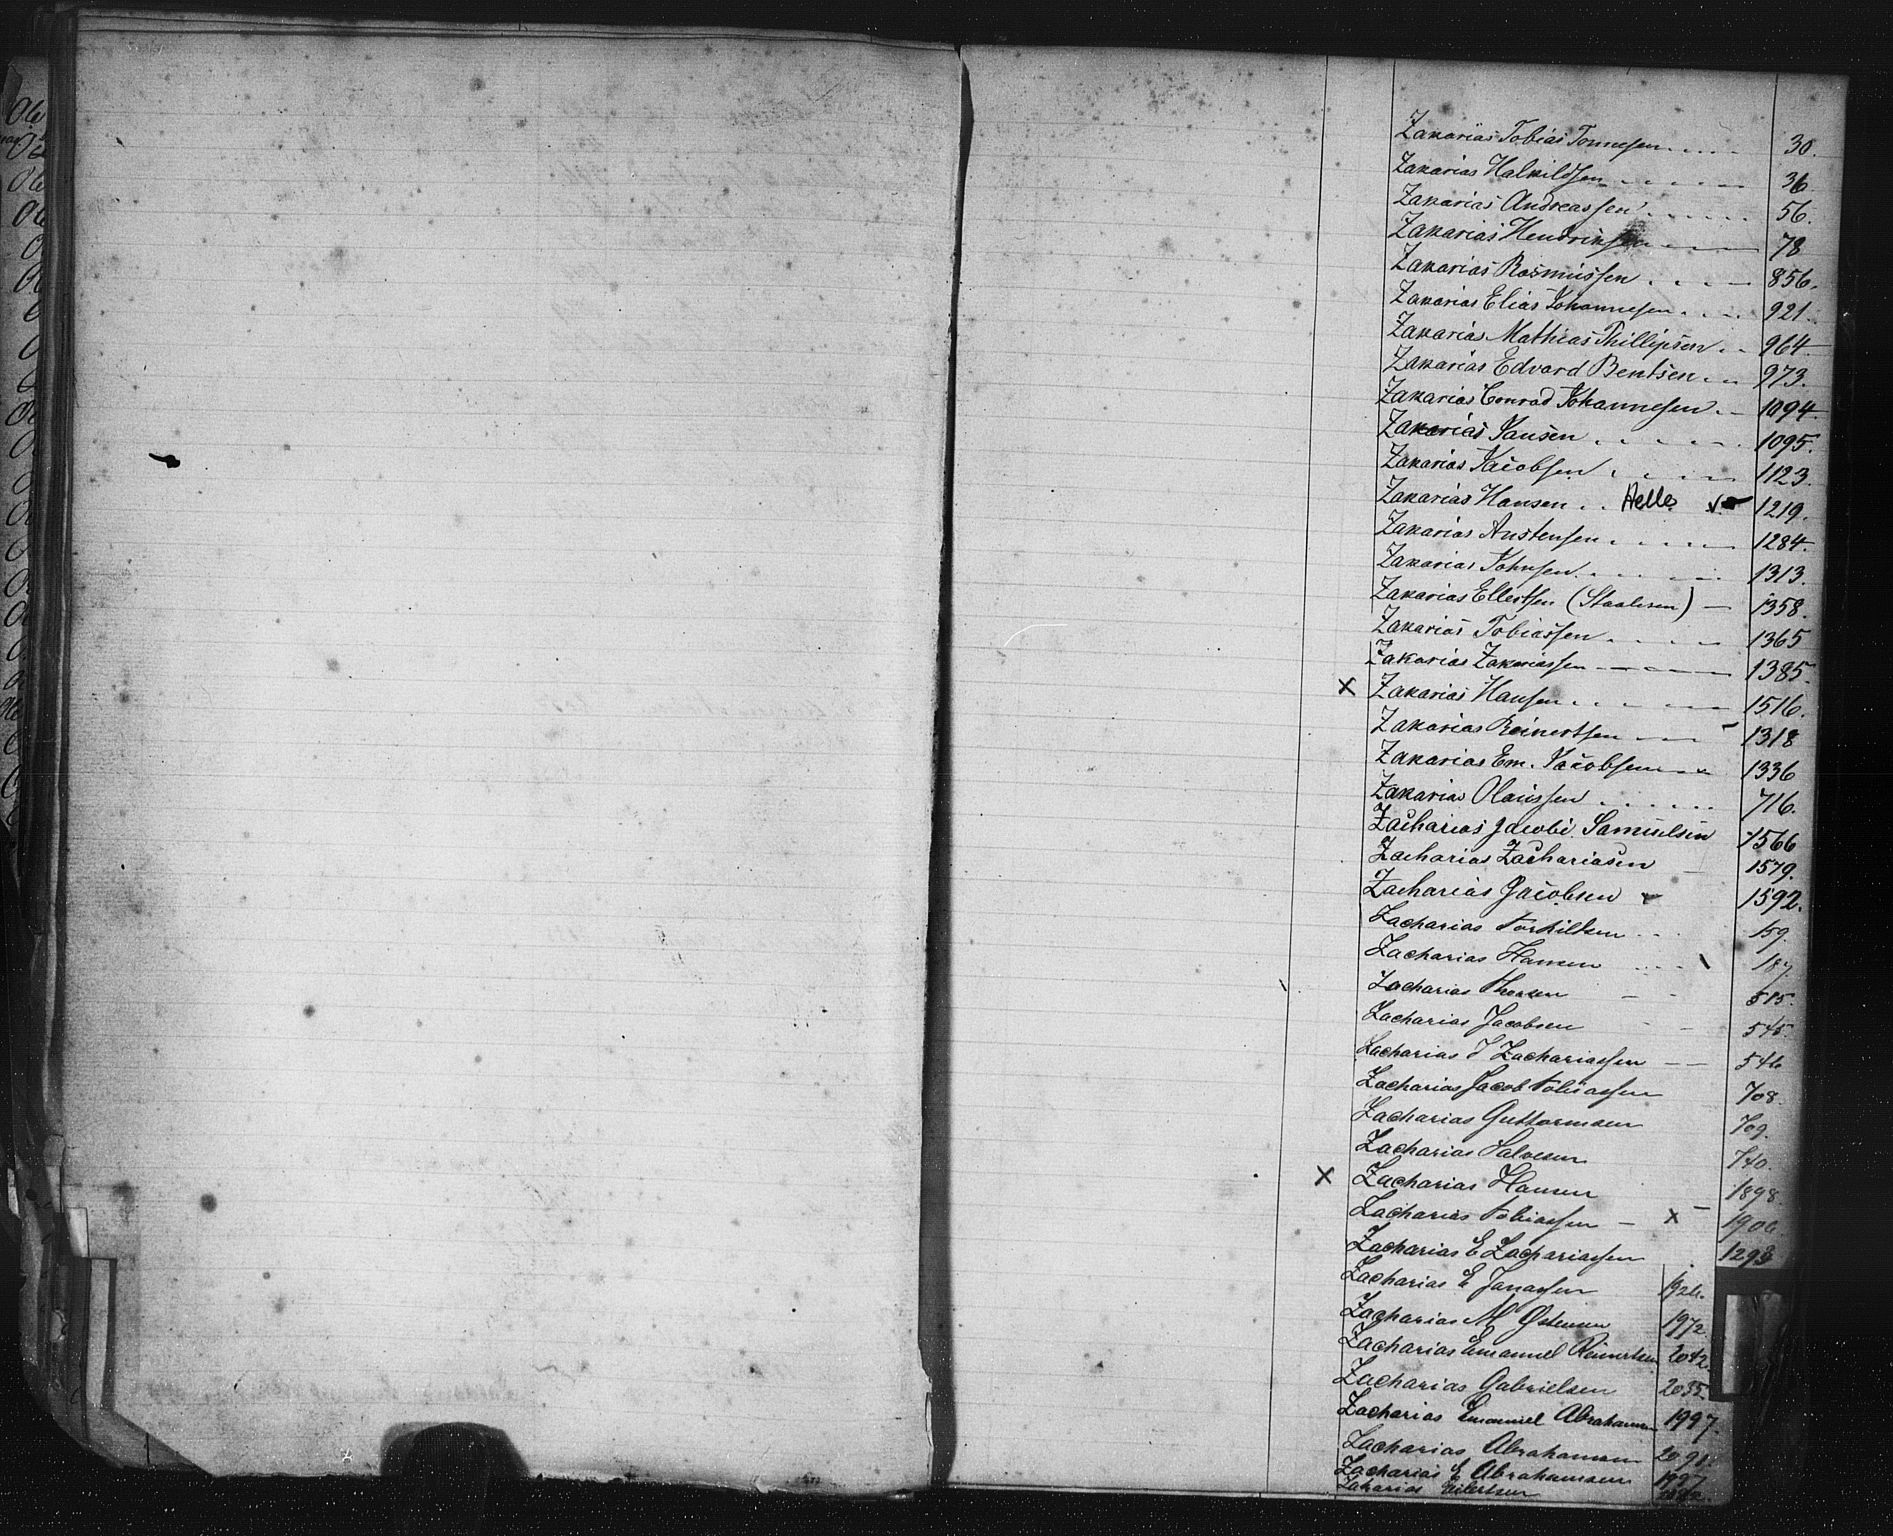 Zakarias Tobias Tønnesen 30.
Zakarias Halvildsen 36
Zakarias Andreassen 56.
Zakarias Hendriksen 78
Zakarias Rasmussen 856.
Zakarias Elias Johannesen 921.
Zakarias Mathias Phillipsen 964.
Zakarias Edvard Bentsen 973.
Zakarias Conrad Johannesen 1094
Zakarias Jansen 1095.
Zakarias Jacobsen 1123.
Zakarias Hansen Helle 1219.
Zakarias Austensen 1284.
Zakarias Johnsen 1313.
Zakarias Ellertsen (Staalesen) 1358.
Zakarias Tobiassen 1365
Zakarias Zakariassen 1385.
X Zakarias Hansen 1516.
Zakarias Reinertsen 1318
Zakarias Em. Jacobsen 1336
Zakarias Olaussen 716.
Zacharias Jacobi Samuelsen 1566
Zacharias Zachariasen 1579.
Zacharias Jacobsen 1592.
Zacharias Torkiltsen 159.
Zacharias Hansen 187.
Zacharias Thorsen 515.
Zacharias Jacobsen 545.
Zacharias T Zachariassen 546
Zacharias Jacob Tobiassen 708.
Zacharias Guttormsen 709.
Zacharias Salvesen 740.
X Zacharias Hansen 1898
Zacharias Tobiassen X 1906
Zacharias E Zachariassen 1298
Zacharias E Janassen 1926.
Zacharias M Ostensen 1972
Zacharias Emanuel Reinertsen 2042.
Zacharias Gabrielsen 2035.
Zacharias Emanuel Abrahamsen 1997.
Zacharias Abrahamsen 2091.
Zacharias E Abrahamsen 1997
Zakarias Eilertsen